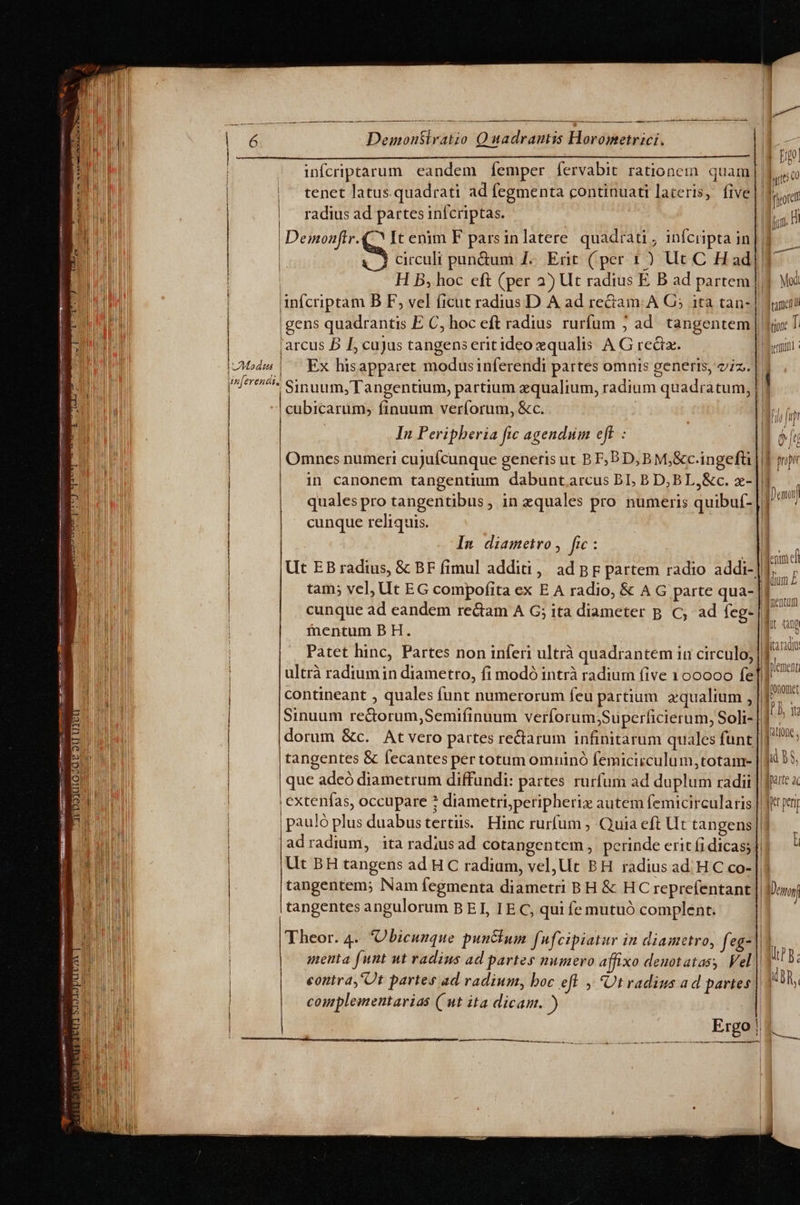 6 Demonstratio Quadrantis Horometrici.
inſcriptarum eandem ſemper ſervabit rationem quam
tenet latus quadrati ad ſegmenta continuati lateris, ſive
radius ad partes inſcriptas.
Demonſtr. It enim F pars in latere quadrati, inſcripta in
circuli punctum I. Erit (per 1) Ut C H ad
H B, hoc eſt (per 2) Ut radius E B ad partem
inſcriptam B F, vel ſicut radius D A ad rectam A G; ita tan-
gens quadrantis E C, hoc eſt radius rurſum; ad tangentem
arcus B I, cujus tangens erit ideo æqualis A G rectæ.
Modus inferendi. Ex his apparet modus inferendi partes omnis generis, viz.
Sinuum, Tangentium, partium æqualium, radium quadratum,
cubicarum, ſinuum verſorum, &c.
In Peripheria ſic agendum eſt:
Omnes numeri cujuſcunque generis ut B F, B D, B M, &c. ingeſti
in canonem tangentium dabunt arcus BI, B D, B L, &c. æ-
quales pro tangentibus, in æquales pro numeris quibuſ-
cunque reliquis.
In diametro, ſic:
Ut EB radius, & BF ſimul additi, ad B F partem radio addi-
tam; vel, Ut EG compoſita ex E A radio, & A G parte qua-
cunque ad eandem rectam A G; ita diameter B C, ad ſeg-
mentum B H.
Patet hinc, Partes non inferi ultrà quadrantem in circulo,
ultrà radium in diametro, ſi modò intrà radium ſive 100000 ſe
contineant, quales ſunt numerorum ſeu partium æqualium,
Sinuum rectorum, Semiſinuum verſorum, Superficierum, Soli-
dorum &c. At vero partes rectarum infinitarum quales ſunt
tangentes & ſecantes per totum omninò ſemicirculum, totam-
que adeò diametrum diffundi: partes rurſum ad duplum radii
extenſas, occupare diametri, peripheriæ autem ſemicircularis
paulò plus duabus tertiis. Hinc rurſum, Quia eſt Ut tangens
ad radium, ita radius ad cotangentem, perinde erit ſi dicas;
Ut BH tangens ad H C radium, vel, Ut BH radius ad H C co-
tangentem; Nam ſegmenta diametri B H & H C repreſentant
tangentes angulorum B E I, I E C, qui ſe mutuò complent.
Theor. 4. Ubicunque punctum ſuſcipiatur in diametro, ſeg-
menta ſunt ut radius ad partes numero affixo denotatas, Vel
contra, Ut partes ad radium, hoc eſt, Ut radius ad partes
complementarias (ut ita dicam.)
Ergo